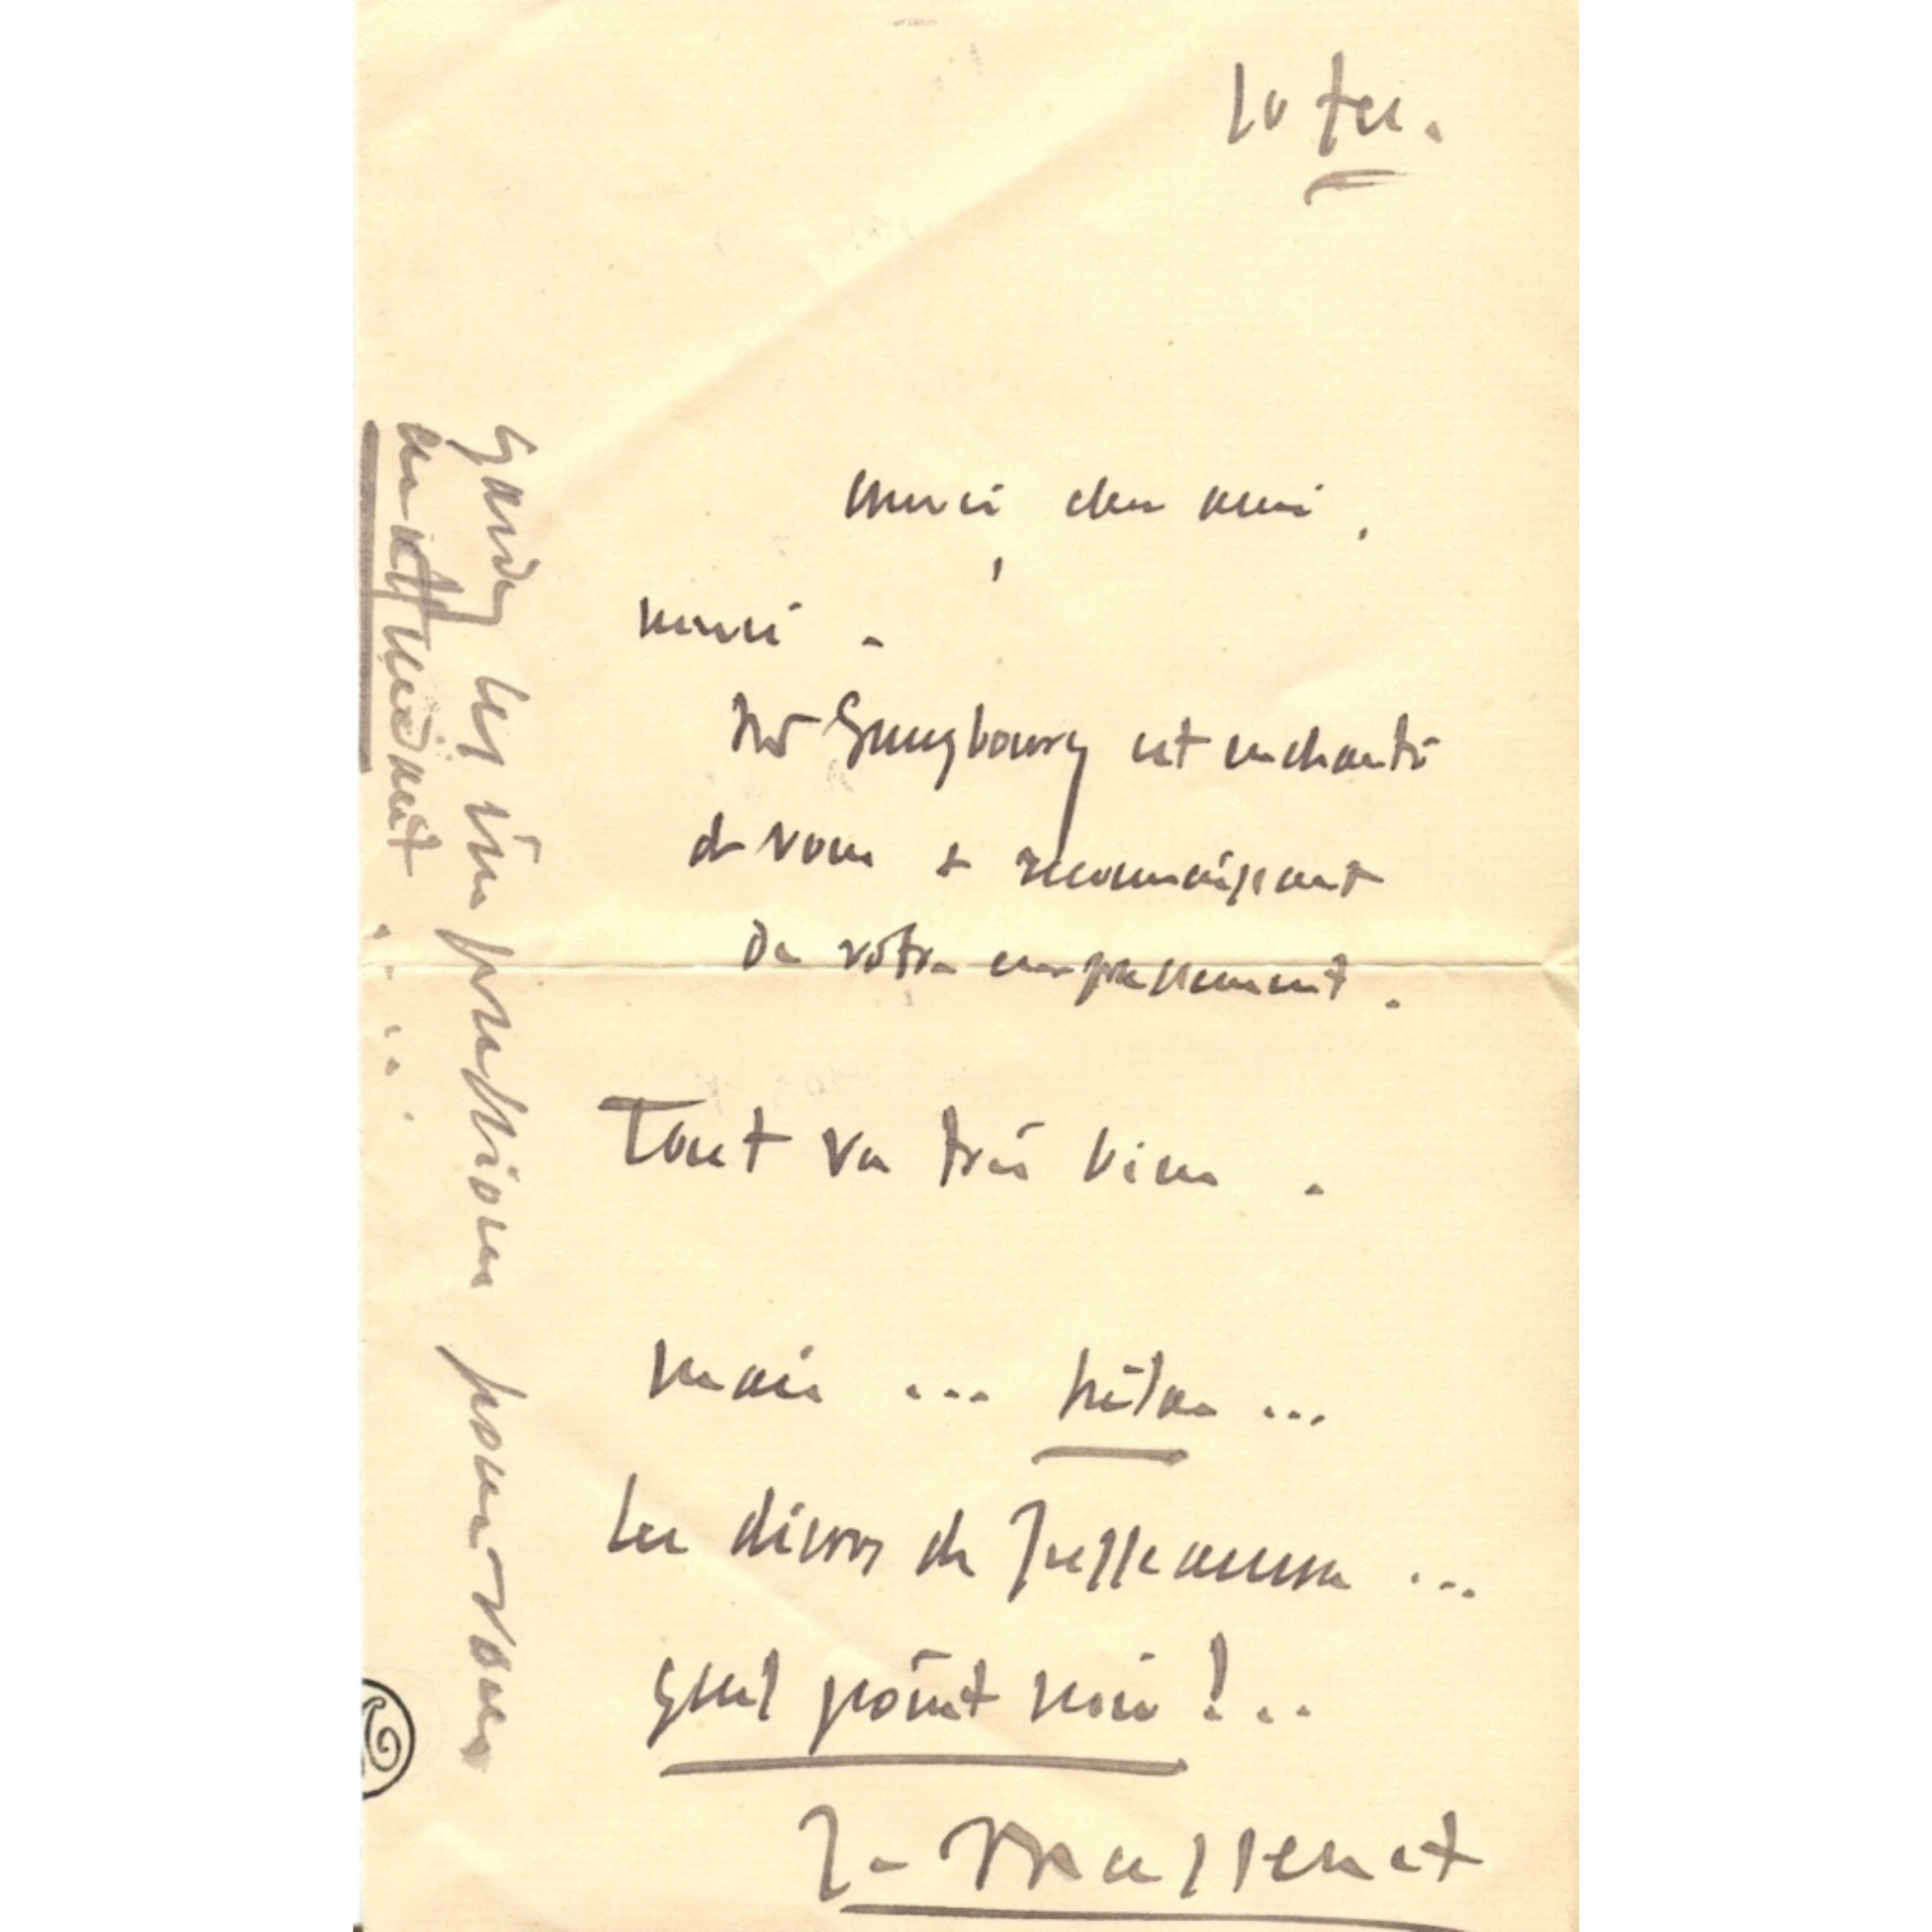 10 fev.
merci cher ami,
merci.
Mr Gunsbourg est enchanté
de vous & reconnaissant
de votre empressement.
Tout va très bien.
mais ... hélas ...
les décors de Jusseaume ...
quel point noir !..
J. Massenet
Gardez les impressions pour vous
en attendant . . . .